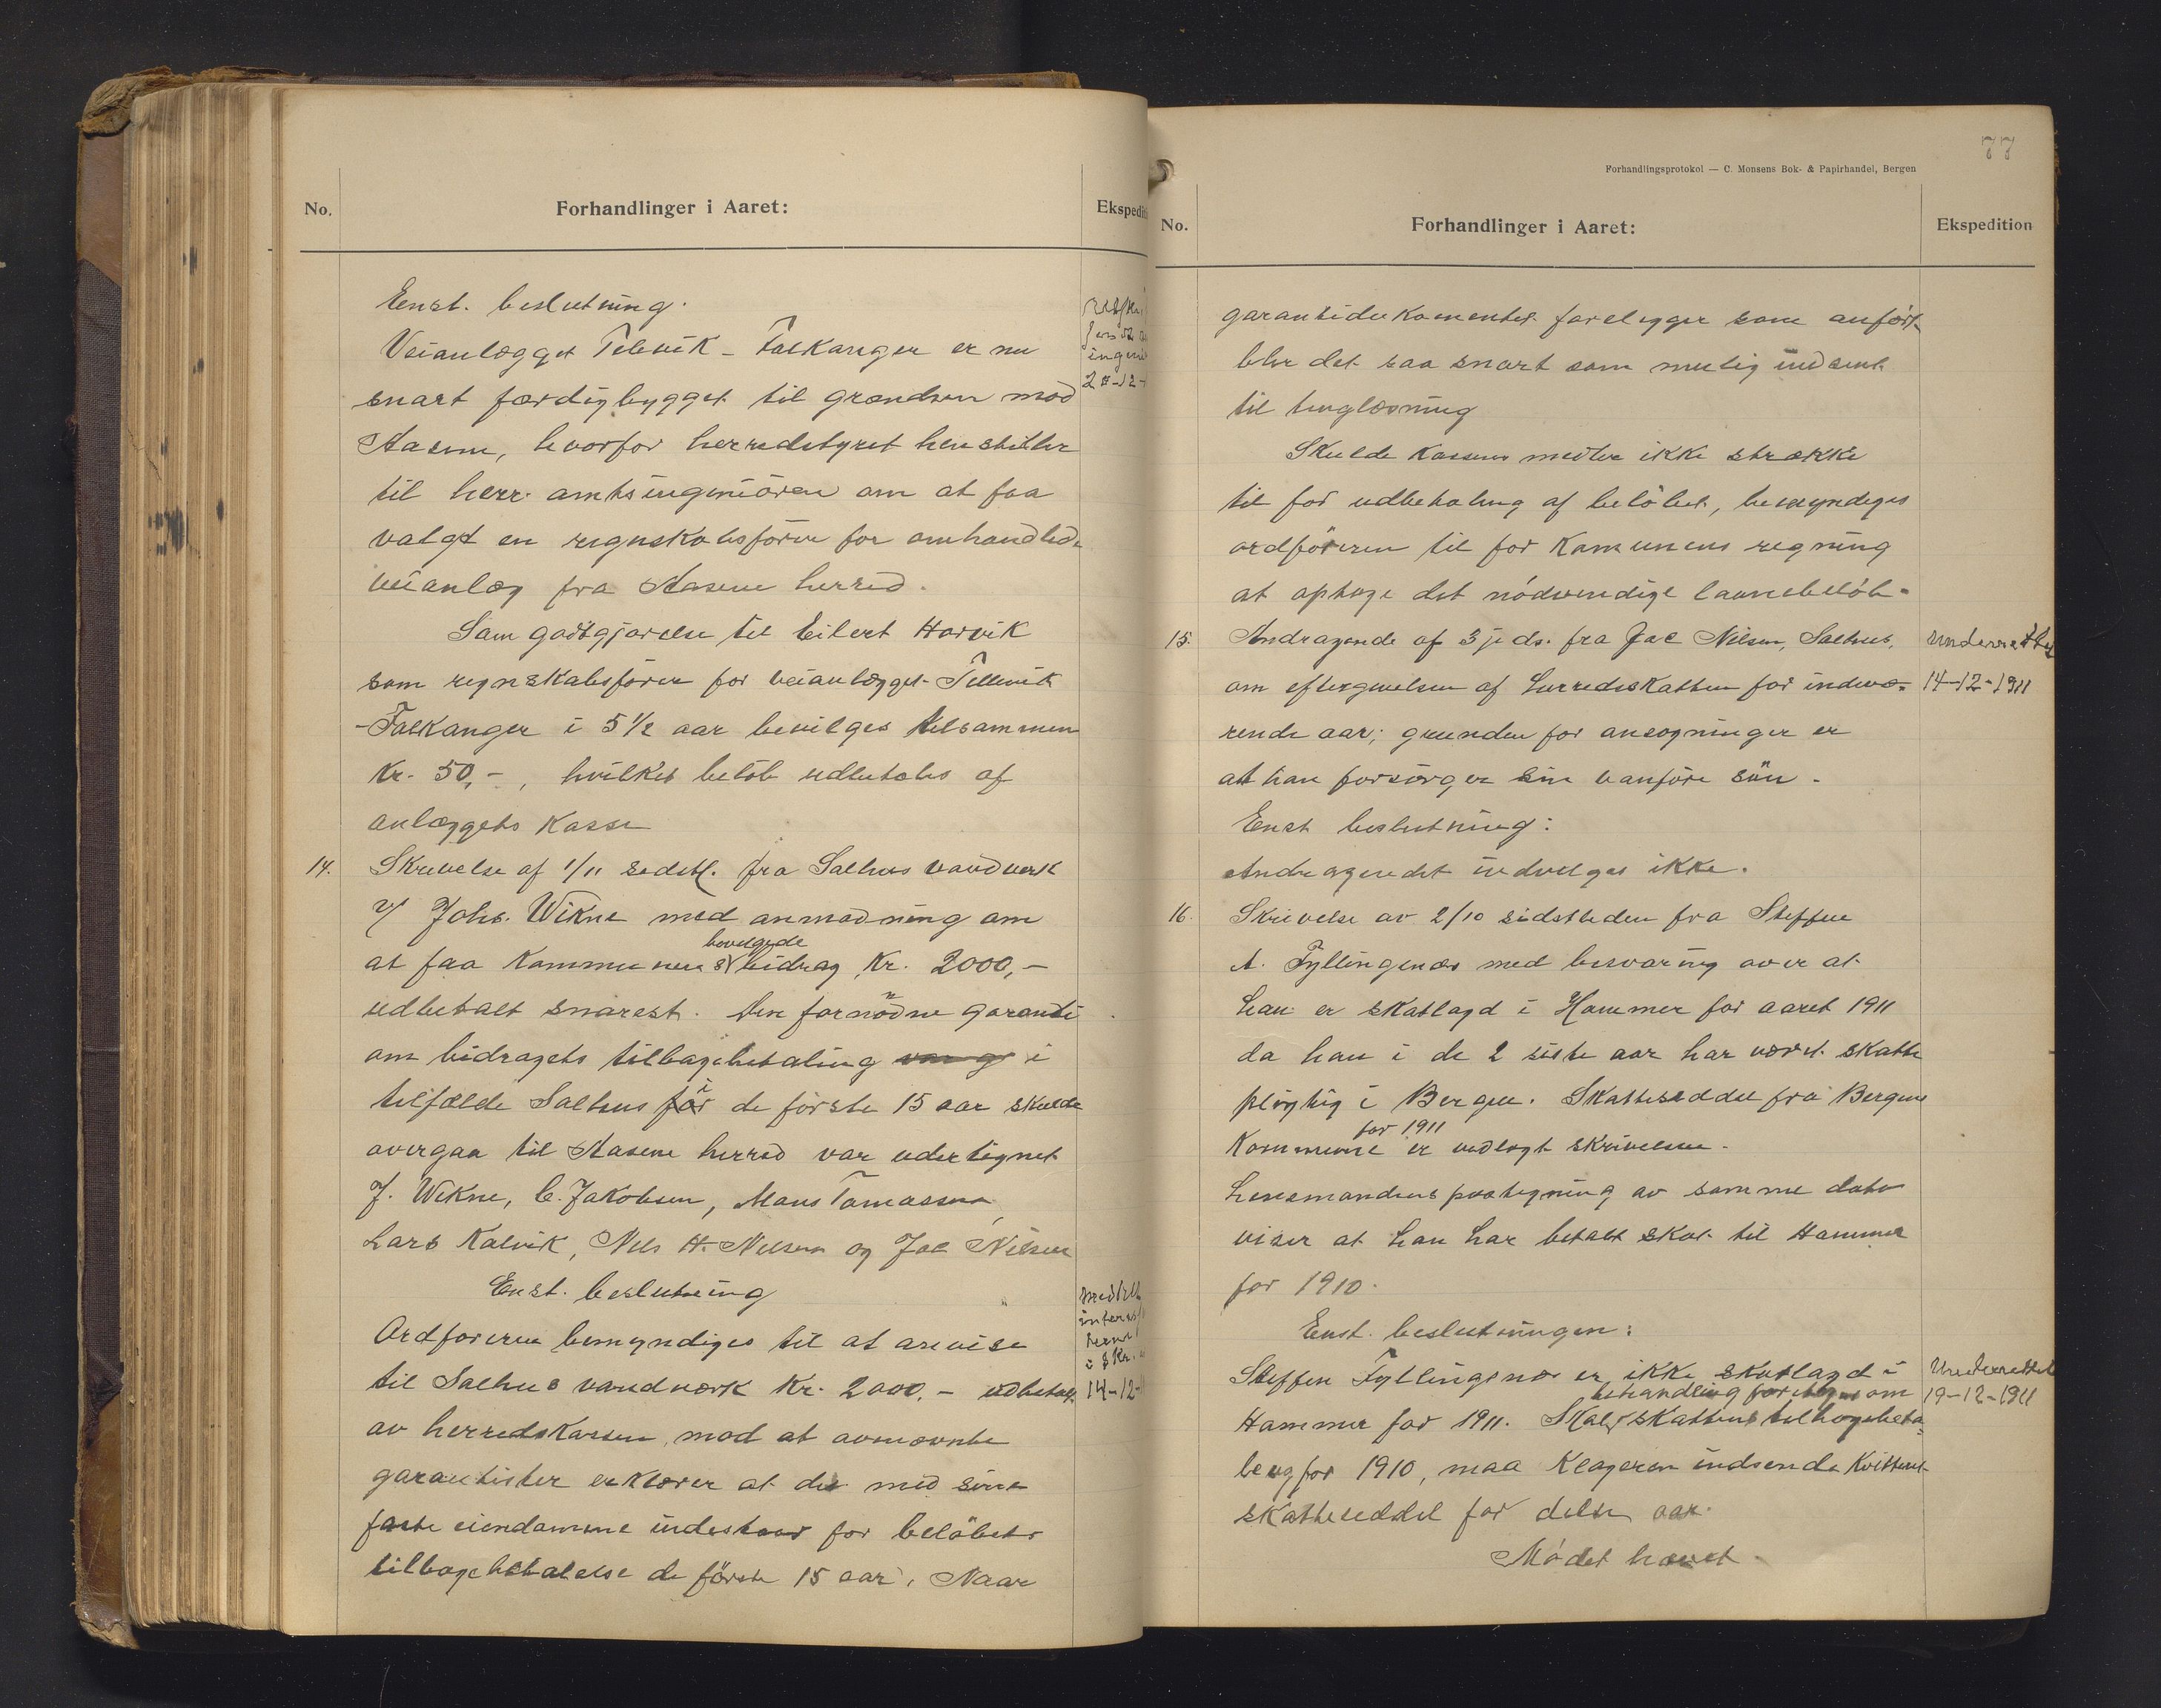 No.
Forhandlinger i Aaret:
Enst. beslutning.
Veianlægget Tellevik - Falkanger er nu
snart færdigbygget til grændsen mod
Aasene, hvorfor herredstyret henstiller
til herr. amtsingeniören om at faa
valgt en regnskabsförer for omhandlede
veianlæg fra Aasene herred.
Som godtgjørelse til Eilert Horvik
som regnskabsförer for veianlægget Tellevik
- Falkanger i 5½ aar bevilges tilsammen
Kr. 50,-, hvilket belöb udbetales af
anlæggets Kasse
14.
Skrivelse af 1/11 sidstl. fra Salhus vandverk
v/ Johs. Wikne med anmodning om
at faa Kommunens bevilgede bidrag, Kr. 2000,-
udbetalt snarest. Den fornödne garanti
om bidragets tilbagebetaling i
tilfælde Salhus i de förste 15 aar skulde
overgaa til Aasene herred var udertegnet
J. Wikne, C. Jakobsen, Mons Tomassen,
Lars Kalvik, Nils H. Nilsen og Jac Nilsen
Enst. beslutning
Ordføreren bemyndiges til at anvise
til Salhus vandverk Kr. 2000,- udbetalt
av herredskassen, mod at avnævnte
garantister erklærer at de med sine
faste eiendomme indestaar for belöbets
tilbagebetalelse de förste 15 aar. Naar
Ekspedit
20-12-
14-12-
77
Forhandlingsprotokol — C. Monsens Bok- & Papirhandel, Bergen
No.
Forhandlinger i Aaret:
Ekspedition
garantidokumentet forelygger som anfört
blir det saa snart som mulig indsent
til tinglæsning
Skulde Kassens midler ikke strække
til for udbetaling af belöbet, bemyndiges
ordföreren til for Kommunens regning
at optage det nödvendige laanebelöb.
15.
Andragende af 3je ds. fra Jac Nilsen, Salhus,
om eftergivelsen af herredsskatten for indevæ-
rende aar; grunden for ansøgninger er
at han forsörger sin vanföre sön.
Enst beslutning:
Andragendet indvilges ikke.
Underrettet
14-12-1911
16.
Skrivelse av 2/10 sidstleden fra Steffen
A. Fyllingsnes med besværing over at
han er skatlagd i Hammer for aaret 1911
da han i de 2 siste aar har været skatte
pligtig i Bergen. Skatteseddel fra Bergens
Kommune for 1911 er vedlagt skrivelsen.
Lensmandens paategning av samme dato
viser at han har betalt skat til Hammer
for 1910.
Enst. beslutningen:
Steffen Fyllingsnes er ikke skatlagd i
Hammer for 1911. Skal behandling foretages om skattens tilbagebeta-
ling for 1910, maa Klageren indsende Kvitteret
skatteseddel for dette aar.
Mödet hævet.
Underrettet
19-12-1911